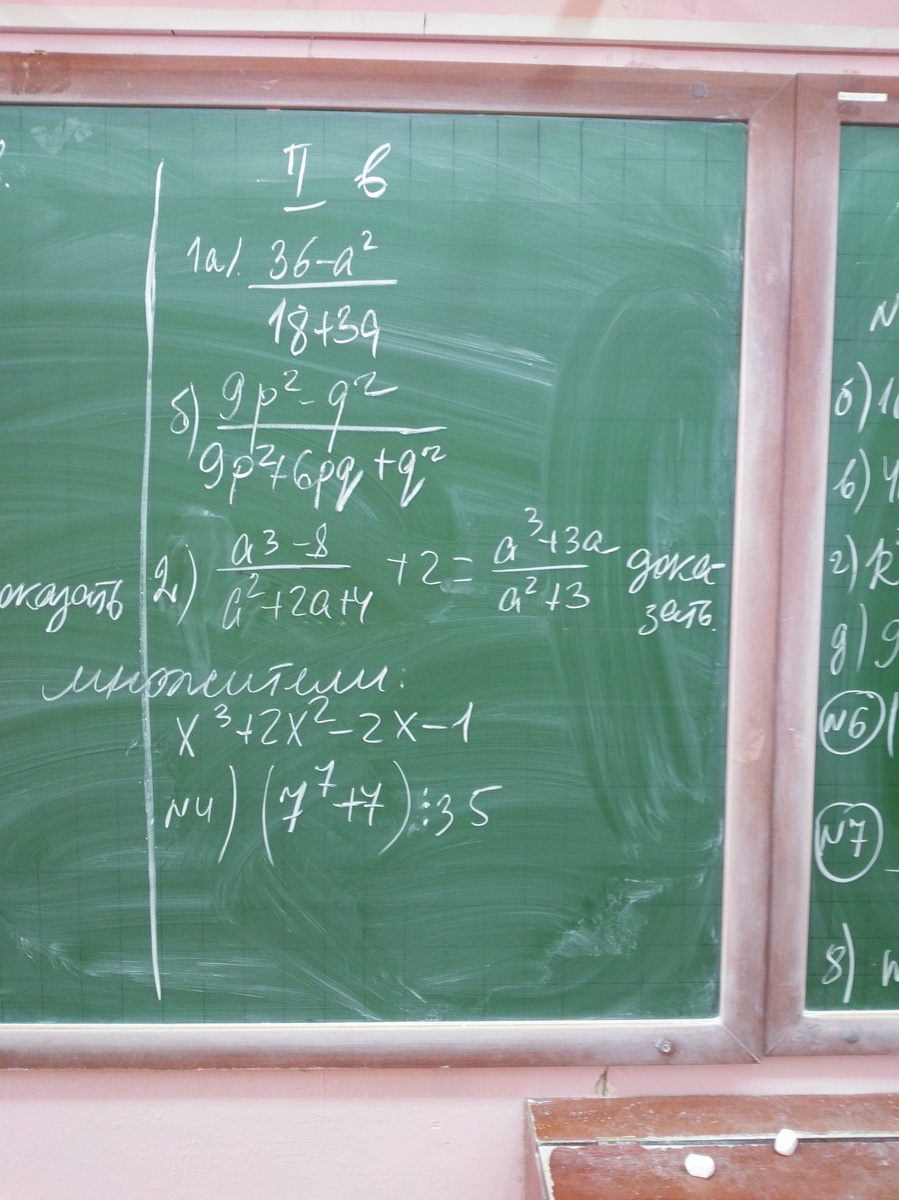 II в
1а). (36-a²)/(18+3a)
б) (9p²-q²)/(9p²+6pq+q²)
2) (a³-8)/(a²+2a+4) +2 = (a³+3a)/(a²+3) дока-
зать.
множители:
x³+2x²-2x-1
№4) (7⁷+7)⋮35
б)
в)
г)
д)
№6
№7
8)